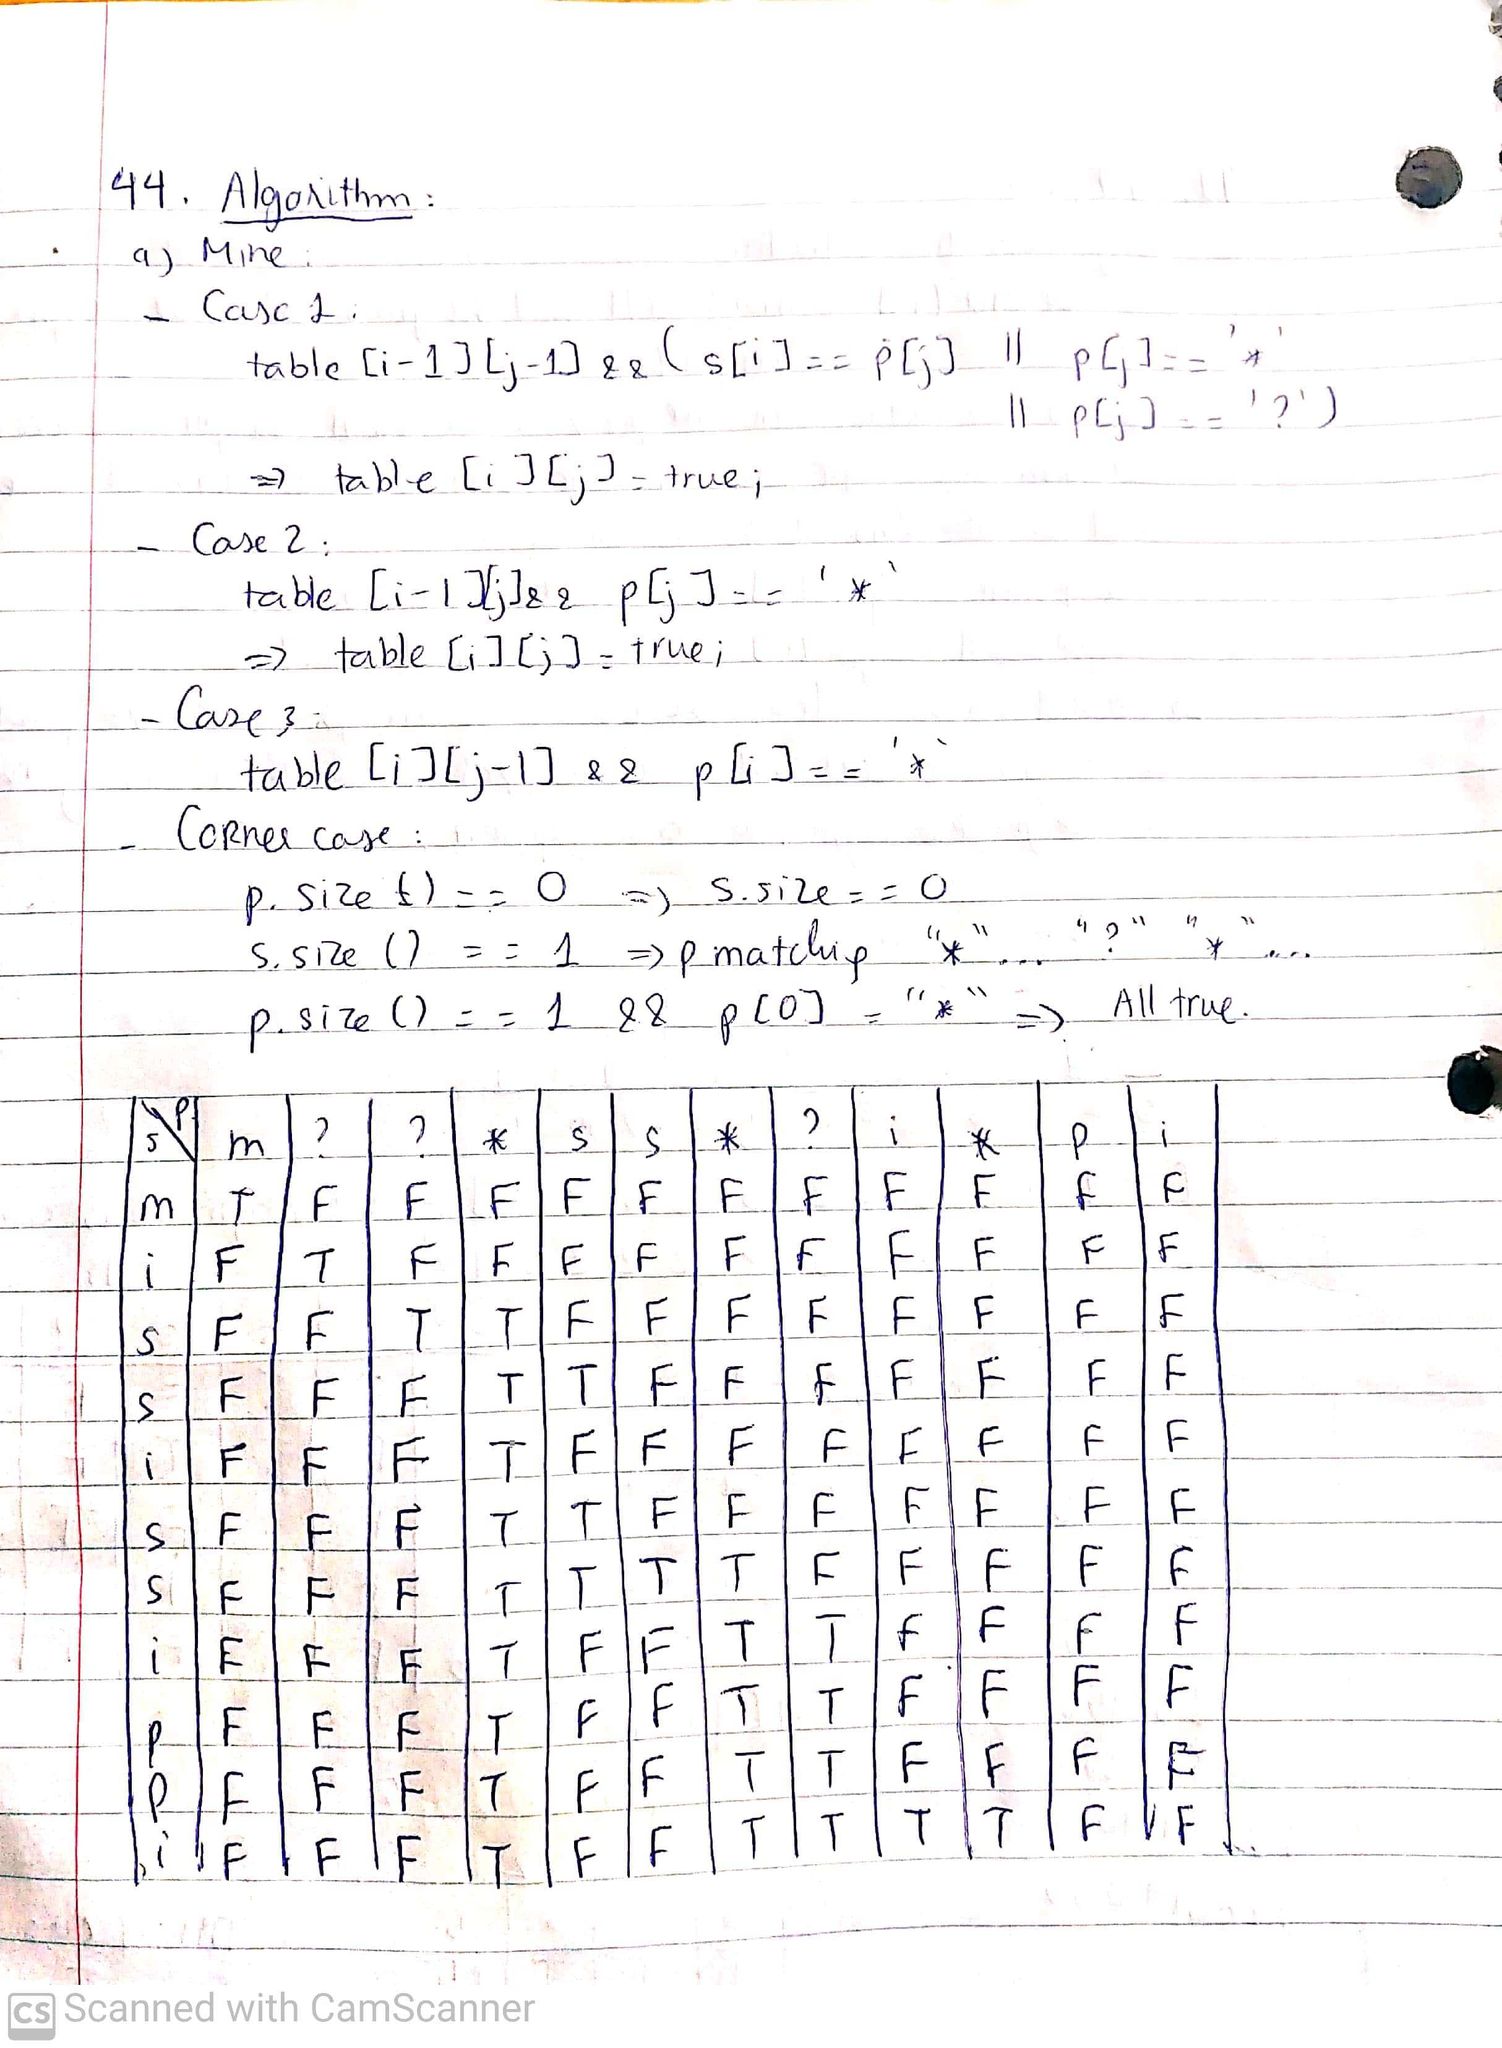 44. Algorithm:
a) Mine:
- Case 1:
table [i-1][j-1] && (s[i] == p[j] || p[j] == '*'
|| p[j] == '?')
=> table [i][j] = true;
- Case 2:
table [i-1][j] && p[j] == '*'
=> table [i][j] = true;
- Case 3:
table [i][j-1] && p[i] == '*'
- Corner case:
p.size () == 0 => s.size == 0
s.size () == 1 => p matching "*"... "?" "*"...
p.size () == 1 && p[0] = "*" => All true.
s\p m ? ? * s s * ? i * p i
m T F F F F F F F F F F F
i F T F F F F F F F F F F
s F F T T F F F F F F F F
s F F F T T F F F F F F F
i F F F T F F F F F F F F
s F F F T T F F F F F F F
s F F F T T T T F F F F F
i F F F T F F T T F F F F
p F F F T F F T T F F F F
p F F F T F F T T F F F F
i F F F T F F T T T T F F
CS Scanned with CamScanner